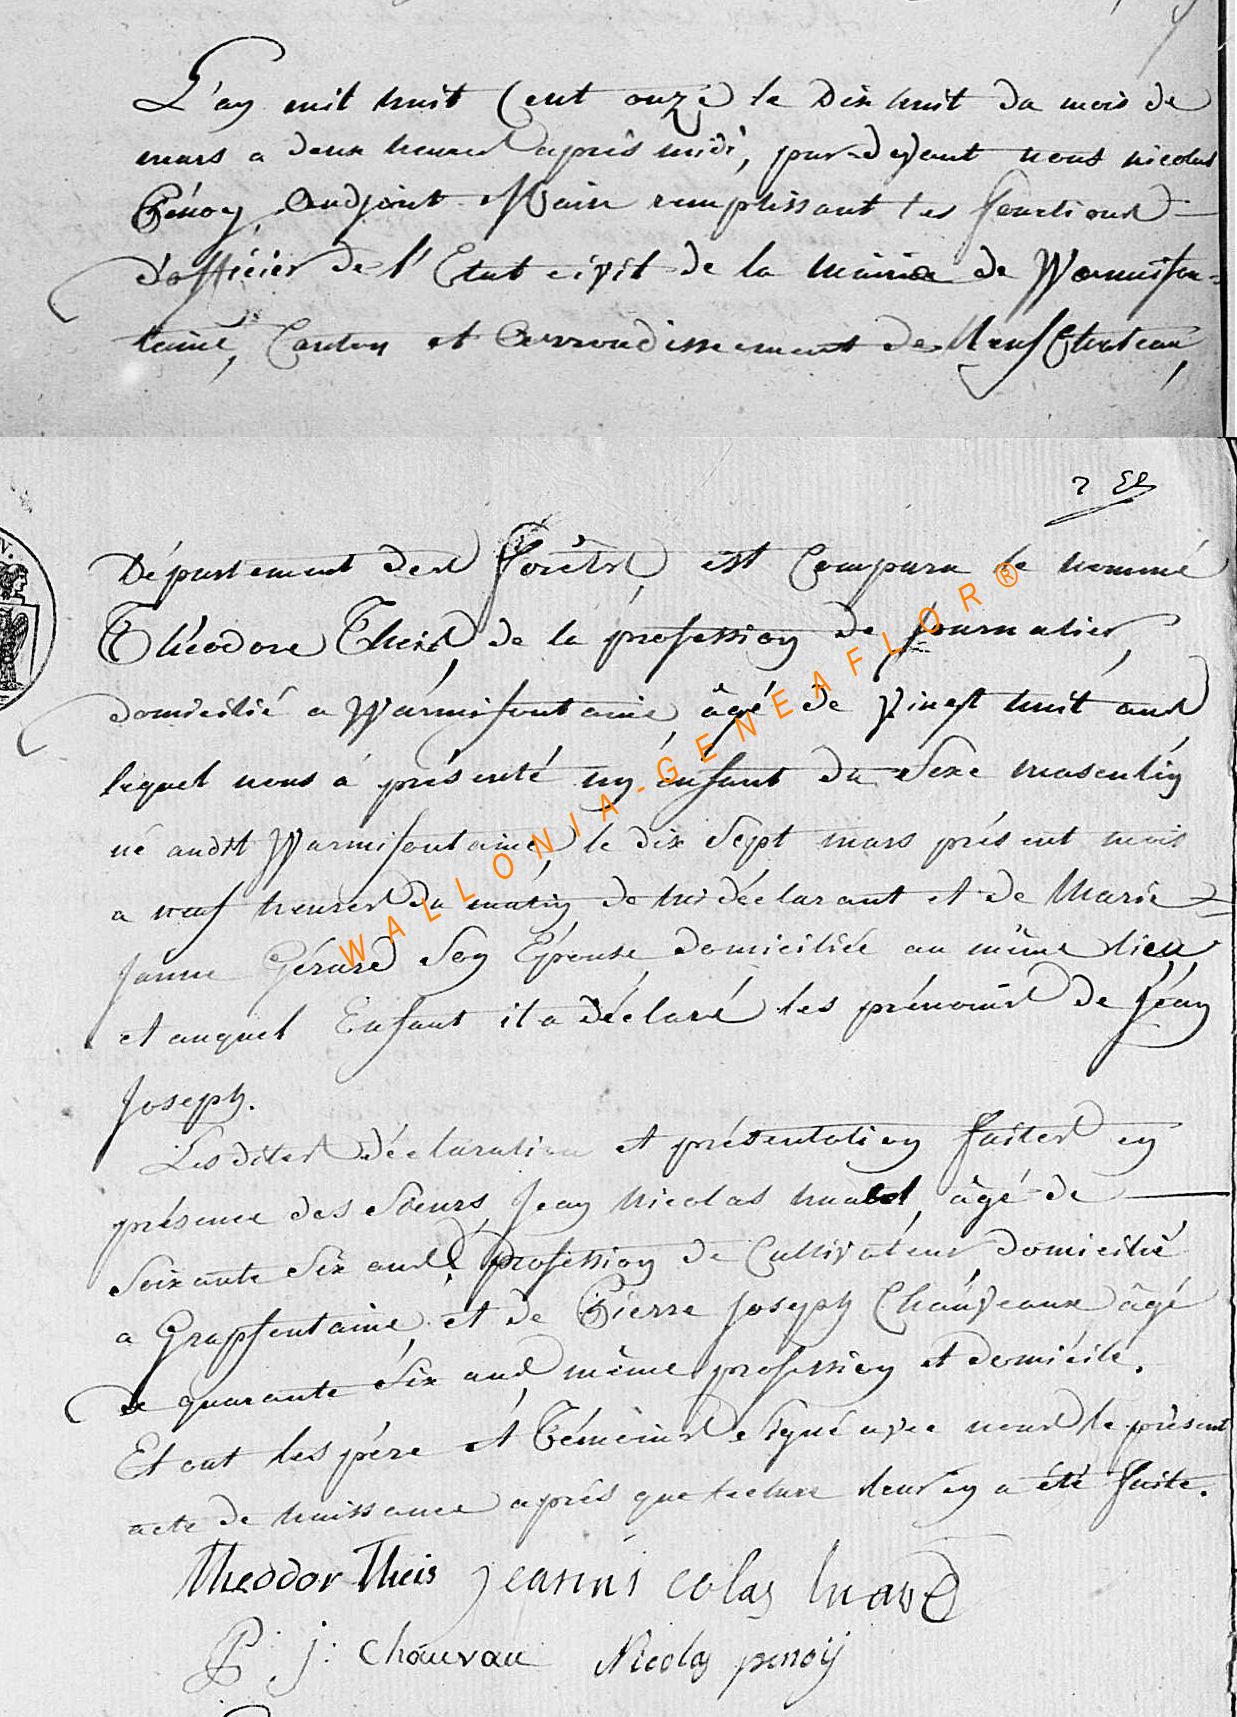 L'an mil huit Cent onze le Dix huit du mois de
mars a deux heures après midi, par-devant nous nicolas
Pénoy, Andjoint Maire remplissant les fonctions
d'officier de l'Etat civil de la Mairie de Warmifon-
taine, Canton et Arrondissement de Neufchateau,
Département des Forêts, est Comparu le nommé
Théodore Theis, de la profession de journalier,
domicilié a Warmifontaine, âgé de Vingt huit ans
lequel nous a présenté un enfant du Sexe masculin
né audit Warmifontaine, le dix Sept mars présent mois
a neuf heures du matin, de lui déclarant et de Marie
Janne Gérard Son Epouse, domiciliée au même lieu,
et auquel Enfant il a déclaré les prénoms de Jéan
Joseph.
Les dites déclaration et présentation faites en
présence des Sieurs, Jean Nicolas huart, âgé de
Soixante Six ans, profession de Cultivateur, domicilié
a Grapfontaine, et de Pierre Joseph Chauveaux âgé
de quarante Six ans, même profession et domicile.
Et ont les père et Témoins Signé avec nous le présent
acte de naissance après que lecture leur en a été faite.
theodor theis jeannicolas huard
P: j: chauvau Nicolas penoÿ
WALLONIA-GENEAFLOR®